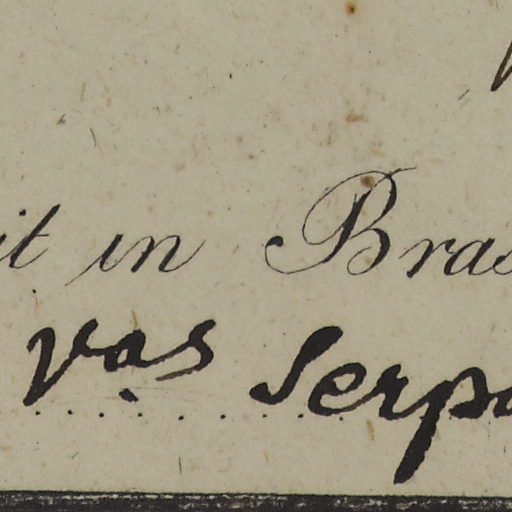 it in Bras
vas Serpa